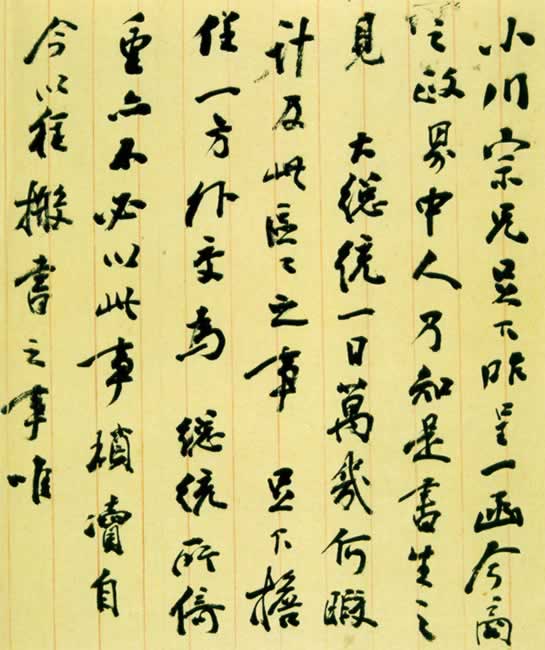 小川宗兄足下昨呈一函今商
之政界中人乃知是書生之
見　大總統一日萬幾何暇
計及此區〻之事　足下擔
任一方外交為　總統所倚
重亦不必以此事瀆自
今以往撥書之事唯